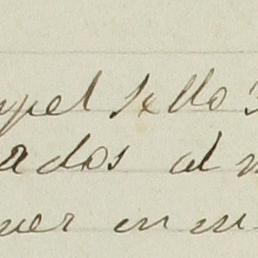 pel Sello 3
ados al
ner en